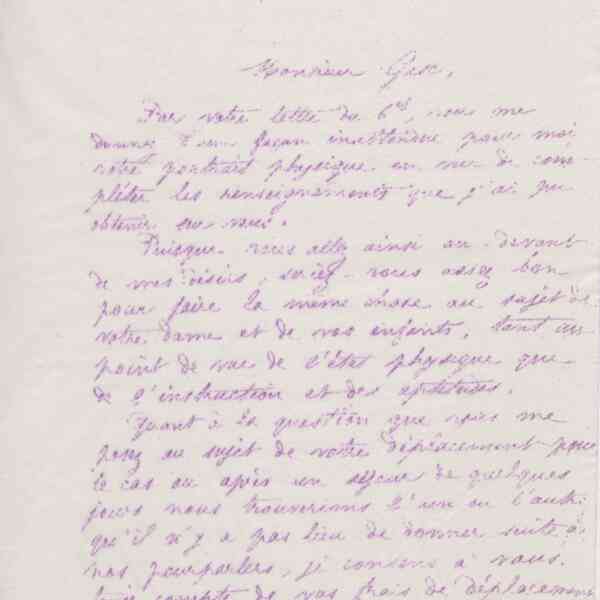 Monsieur Gesc,
Par votre lettre du 6 ct, vous me
donnez d'une façon inattendue pour moi
votre portrait physique en vue de com-
pléter les renseignements que j'ai pu
obtenir sur vous.
Puisque vous allez ainsi au devant
de mes désirs, seriez-vous assez bon
pour faire la même chose au sujet de
votre dame et de vos enfants, tant au
point de vue de l'état physique que
de l'instruction et des aptitudes.
Quant à la question que vous me
posez au sujet de votre déplacement pour
le cas où après un séjour de quelques
jours nous trouverions l'un ou l'autre
qu'il n'y a pas lieu de donner suite à
nos pourparlers, je consens à vous
tenir compte de vos frais de déplacement